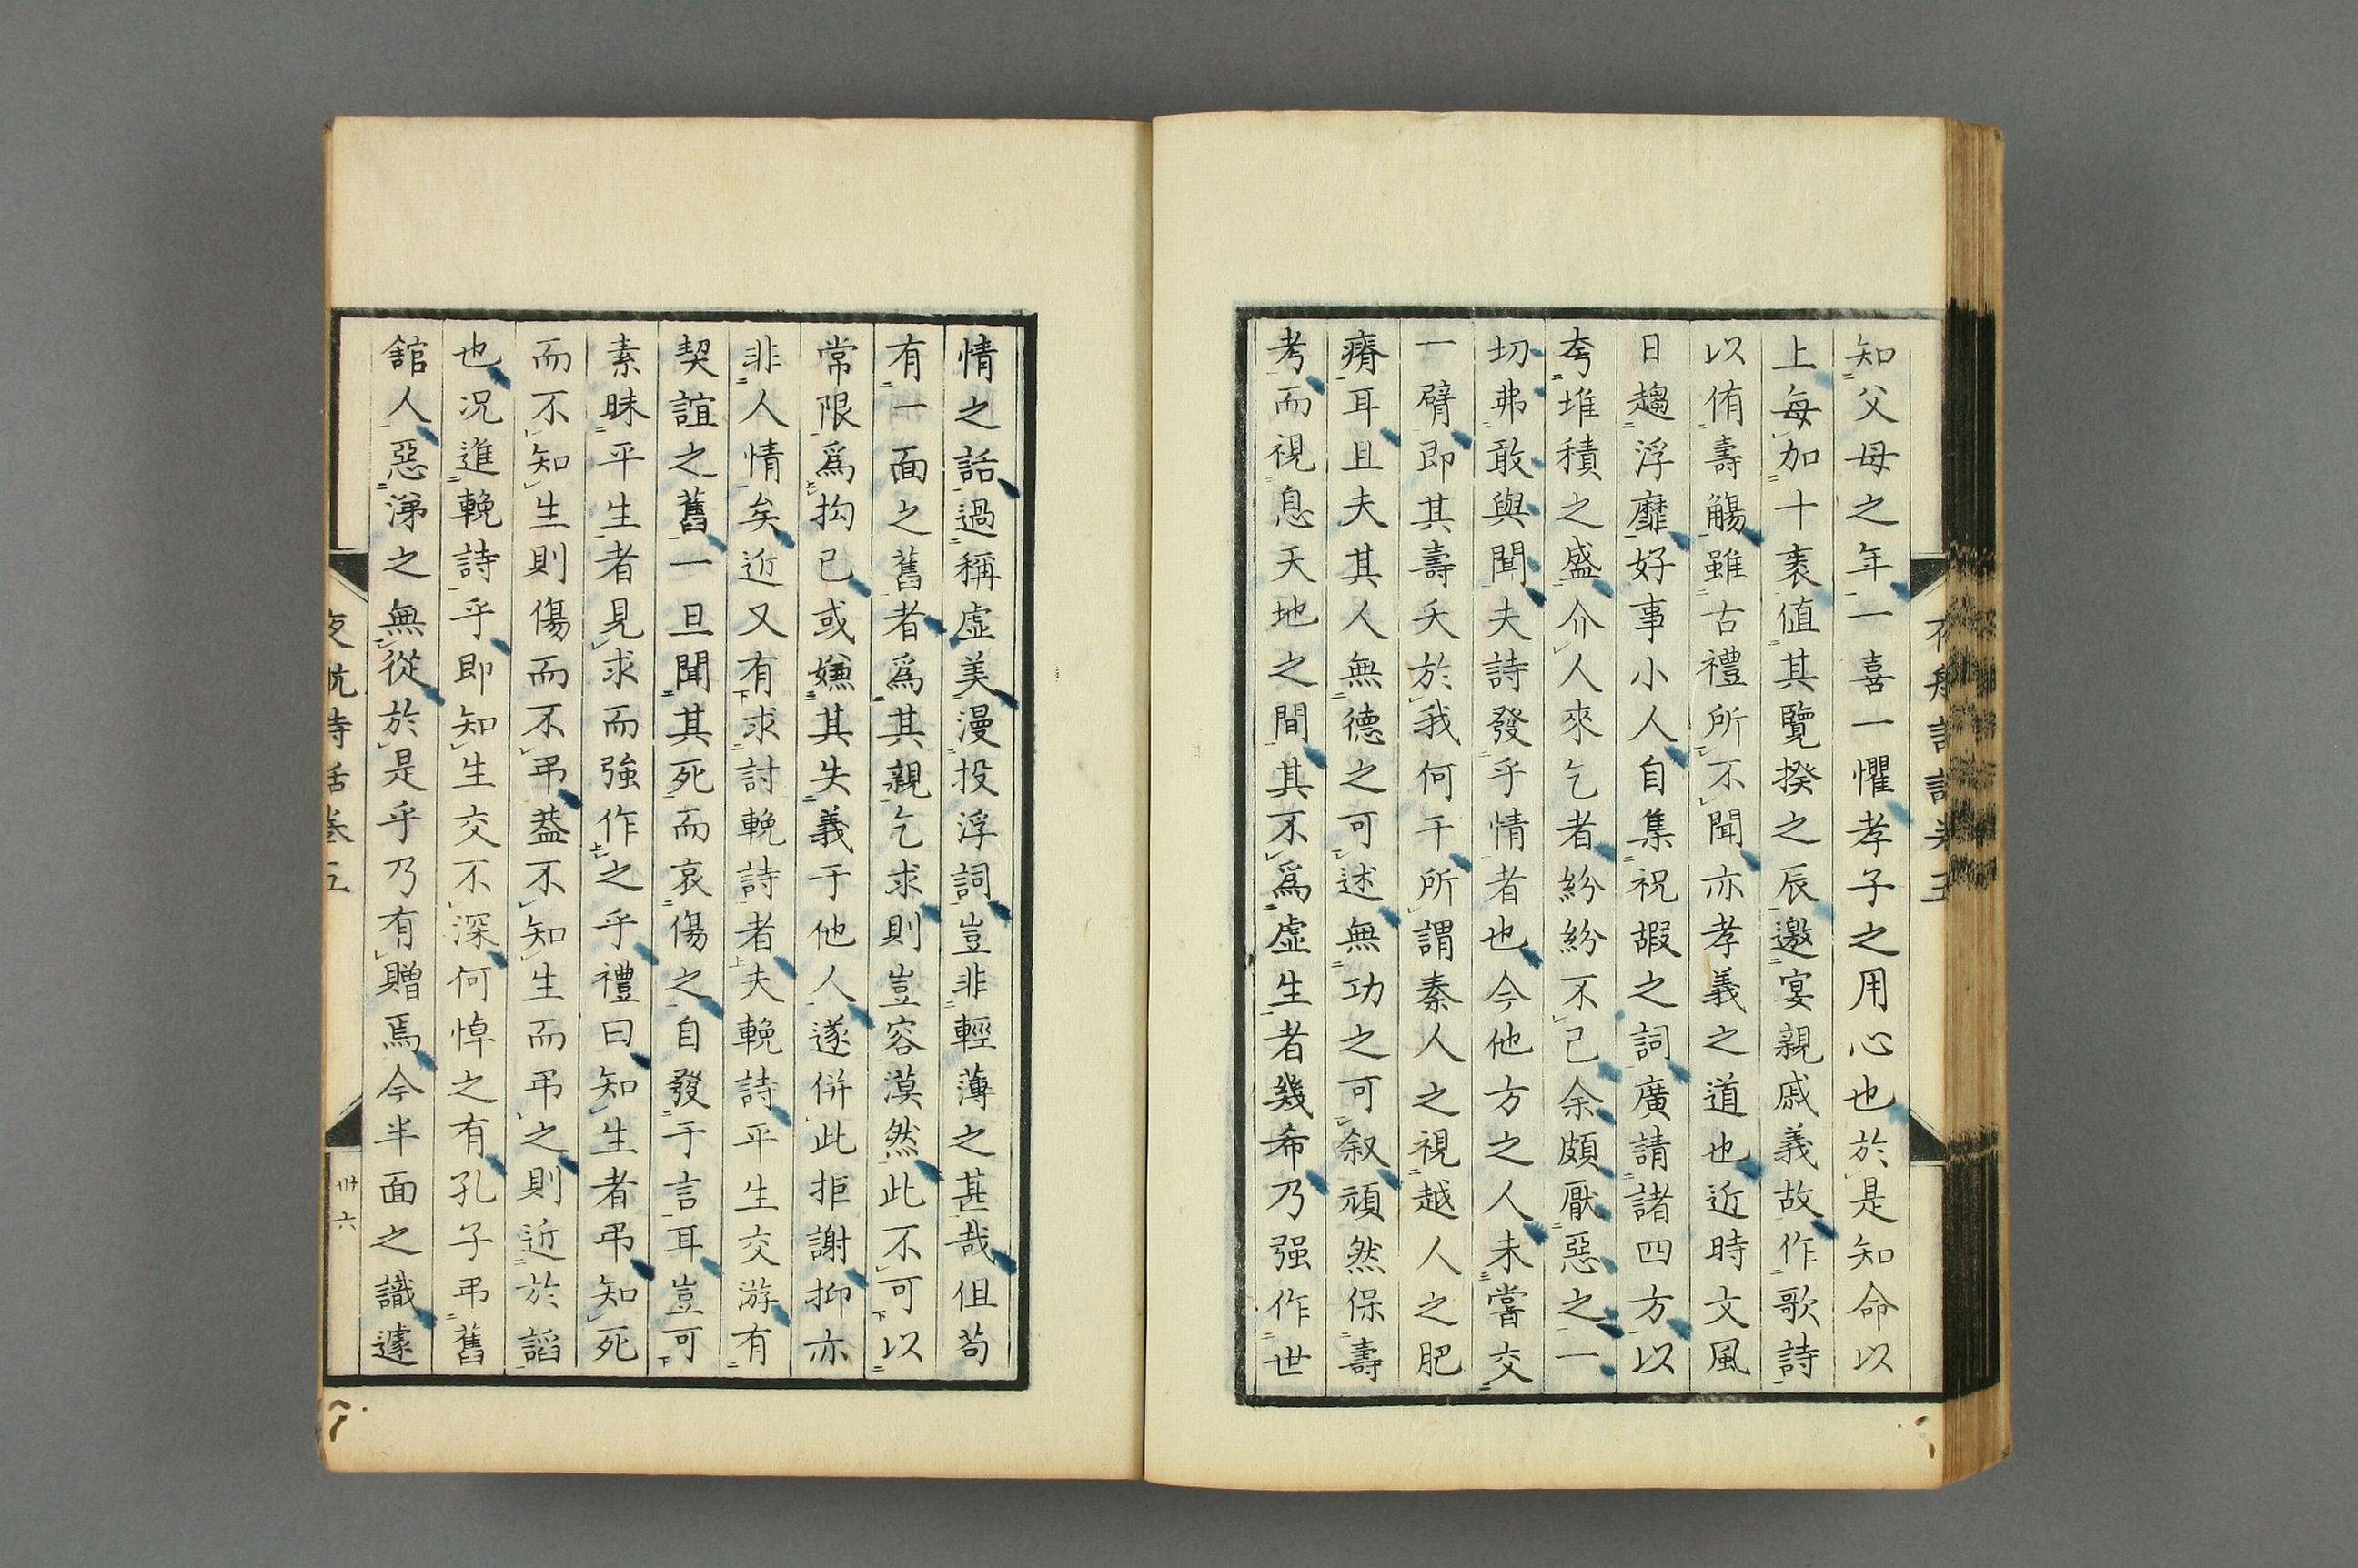 知父母之年一喜一懼孝子之用心也於是知命以
上每加十袠值其覽揆之辰邀宴親戚義故作歌詩
以侑壽觴雖古禮所不聞亦孝義之道也近時文風
日趨浮靡好事小人自集祝嘏之詞廣請諸四方以
夸堆積之盛介人來乞者紛紛不已余頗厭惡之一
切弗敢與聞夫詩發乎情者也今他方之人未嘗交
一臂即其壽夭於我何干所謂秦人之視越人之肥
瘠耳且夫其人無德之可述無功之可叙頑然保壽
考而視息天地之間其不爲虛生者幾希乃强作世
情之話過稱虛美漫投浮詞豈非輕薄之甚哉但苟
有一面之舊者爲其親乞求則豈容漠然此不可以
常限爲拘已或嫌其失義于他人遂併此拒謝抑亦
非人情矣近又有求討輓詩者夫輓詩平生交游有
契誼之舊一旦聞其死而哀傷之自發于言耳豈可
素昧平生者見求而強作之乎禮曰知生者弔知死
而不知生則傷而不弔葢不知生而弔之則近於諂
也况進輓詩乎即知生交不深何悼之有孔子弔舊
舘人惡涕之無從於是乎乃有贈焉今半面之識遽
夜航詩話卷五
卅六